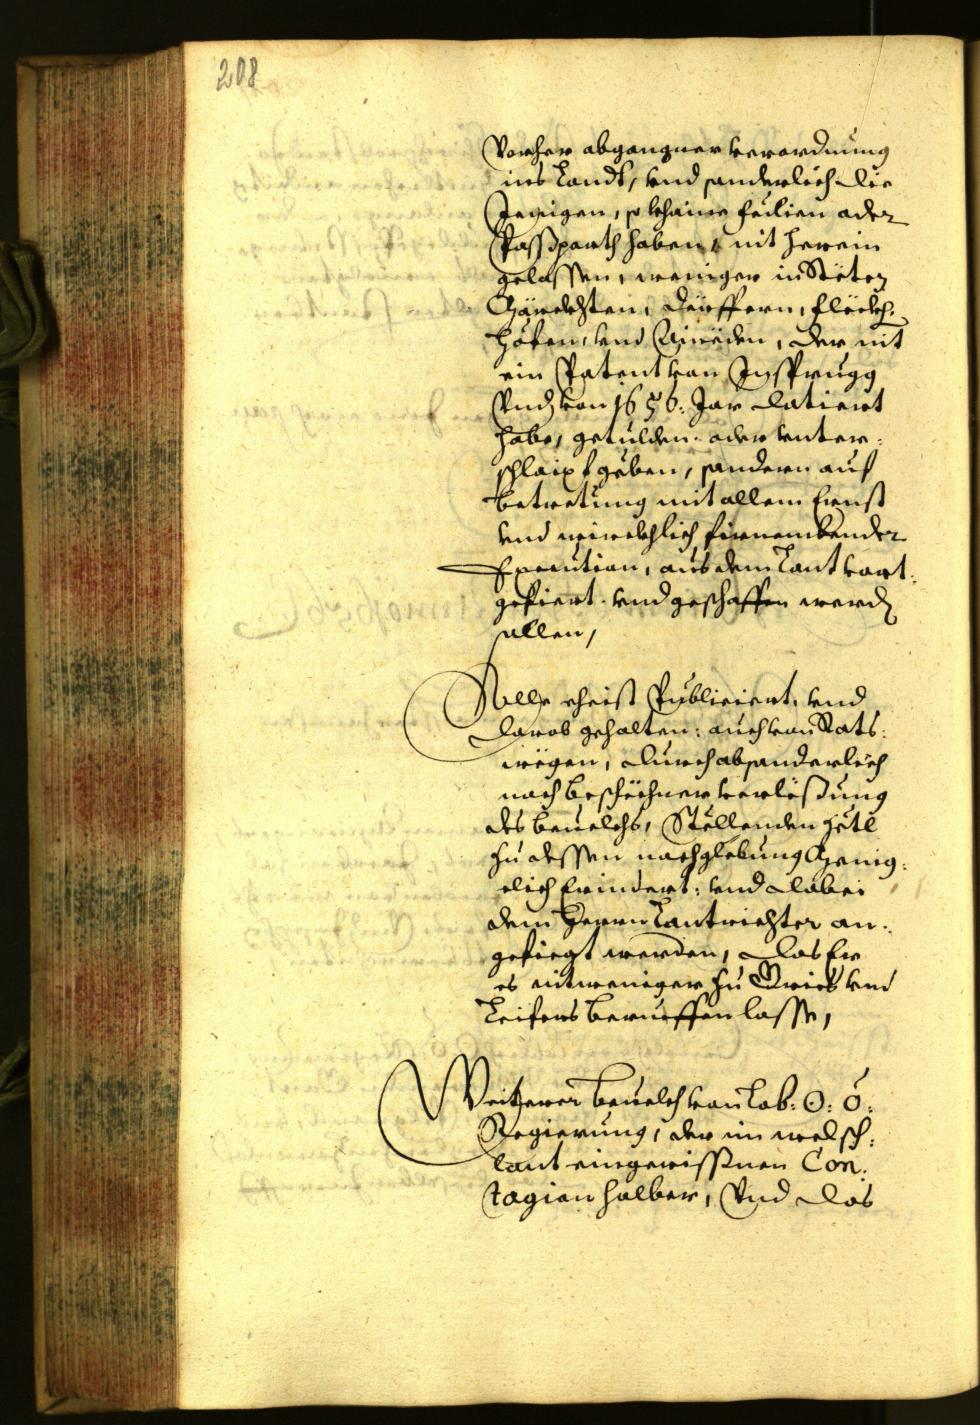 208
Vorher abgangner verordnung
ins Landt, vnd sonderlich die
Jenigen, so khaine Feulien oder
Passporth haben, nit herein
gelassen, weniger in Stëten
Märckhten, Dörffern, Fleckh:
höfen, vnd Ainöden, der nit
ein Patent von Insprugg
Vnd von 1656. Jar datiert
habe, getulden oder vnter-
schlaipf geben, sondern auf
betretung mit allem Ernst
vnd wirckhlich firnembender
Execution, aus dem Lant vort-
gefiert vnd geschaffen werden
sollen,
Solle theist Publiciert, vnd
darob gehalten: auch von Rats-
wegen, durch absonderlich
nach beschëchner verlesung
des beuelchs, Stellenden Zëtl
zu dessen nachglebung Menig-
elich Erindert: vnd dabei
dem Herrn Lantrichter an-
gefiegt werden, das Er
es nitweniger zu Gries vnd
Leifers berueffen lasse,
Weiterer beuelch von Lob: O: Ö:
Regierung, der im welsch-
lant eingerissnen Con-
tagion halber, Vnd das